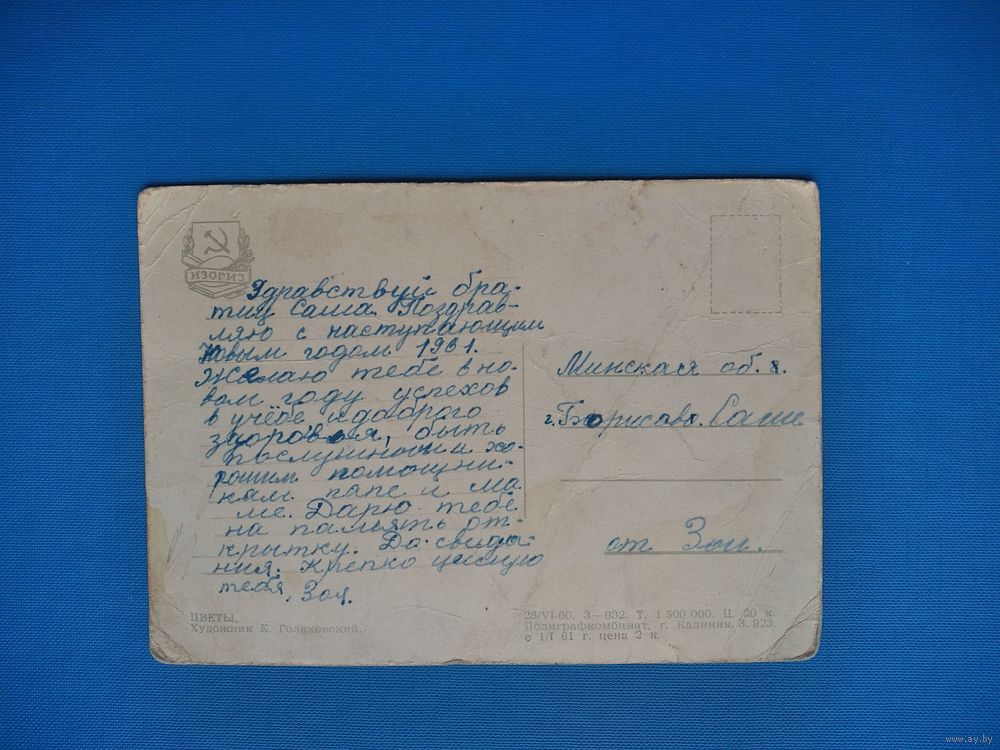 ИЗОГИЗ
Здравствуй бра-
тиц Саша. Поздрав-
ляю с наступающим
Новым годом 1961.
Желаю тебе в но-
вом году успехов
в учёбе и доброго
здоровья, быть
послушном и хо-
рошим помощни-
кам папе и ма
ме. Дарю тебе
на память от-
крытку. До свида-
ния. Крепко целую
тебя, Зоя.
Минская об.
г. Борисов. Саше
от Зои.
ЦВЕТЫ.
Художник Е. Голяховский.
28/VI-60. З—932. Т. 1 500 000. Ц. 20 к.
Полиграфкомбинат, г. Калинин, З. 923
с 1/I 61 г. цена 2 к.
www.ay.by